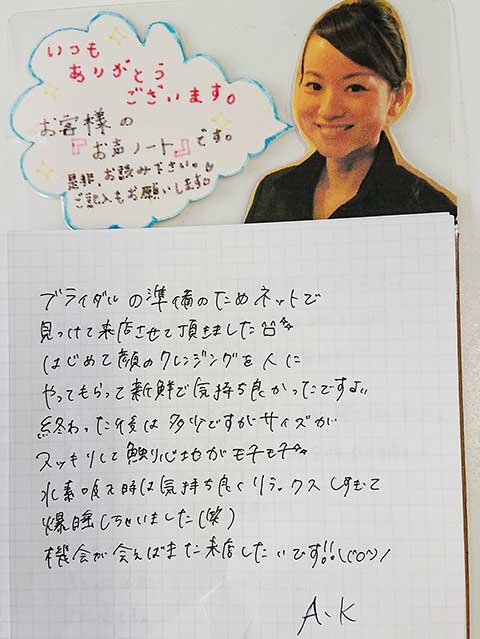 いつも
ありがとう
ございます。
お客様の
『お声ノート』です。
是非、お読み下さい。
ご記入もお願いします。
ブライダルの準備のためネットで
見つけて来店させて頂きました
はじめて顔のクレンジングを人に
やってもらって新鮮で気持ち良かったですよ
終わった後は多少ですがサイズが
スッキリして触り心地がモチモチ
水素吸入時は気持ち良くリラックスしすぎて
爆睡しちゃいました(笑)
機会が会えばまた来店したいです!!\(^o^)/
A.K